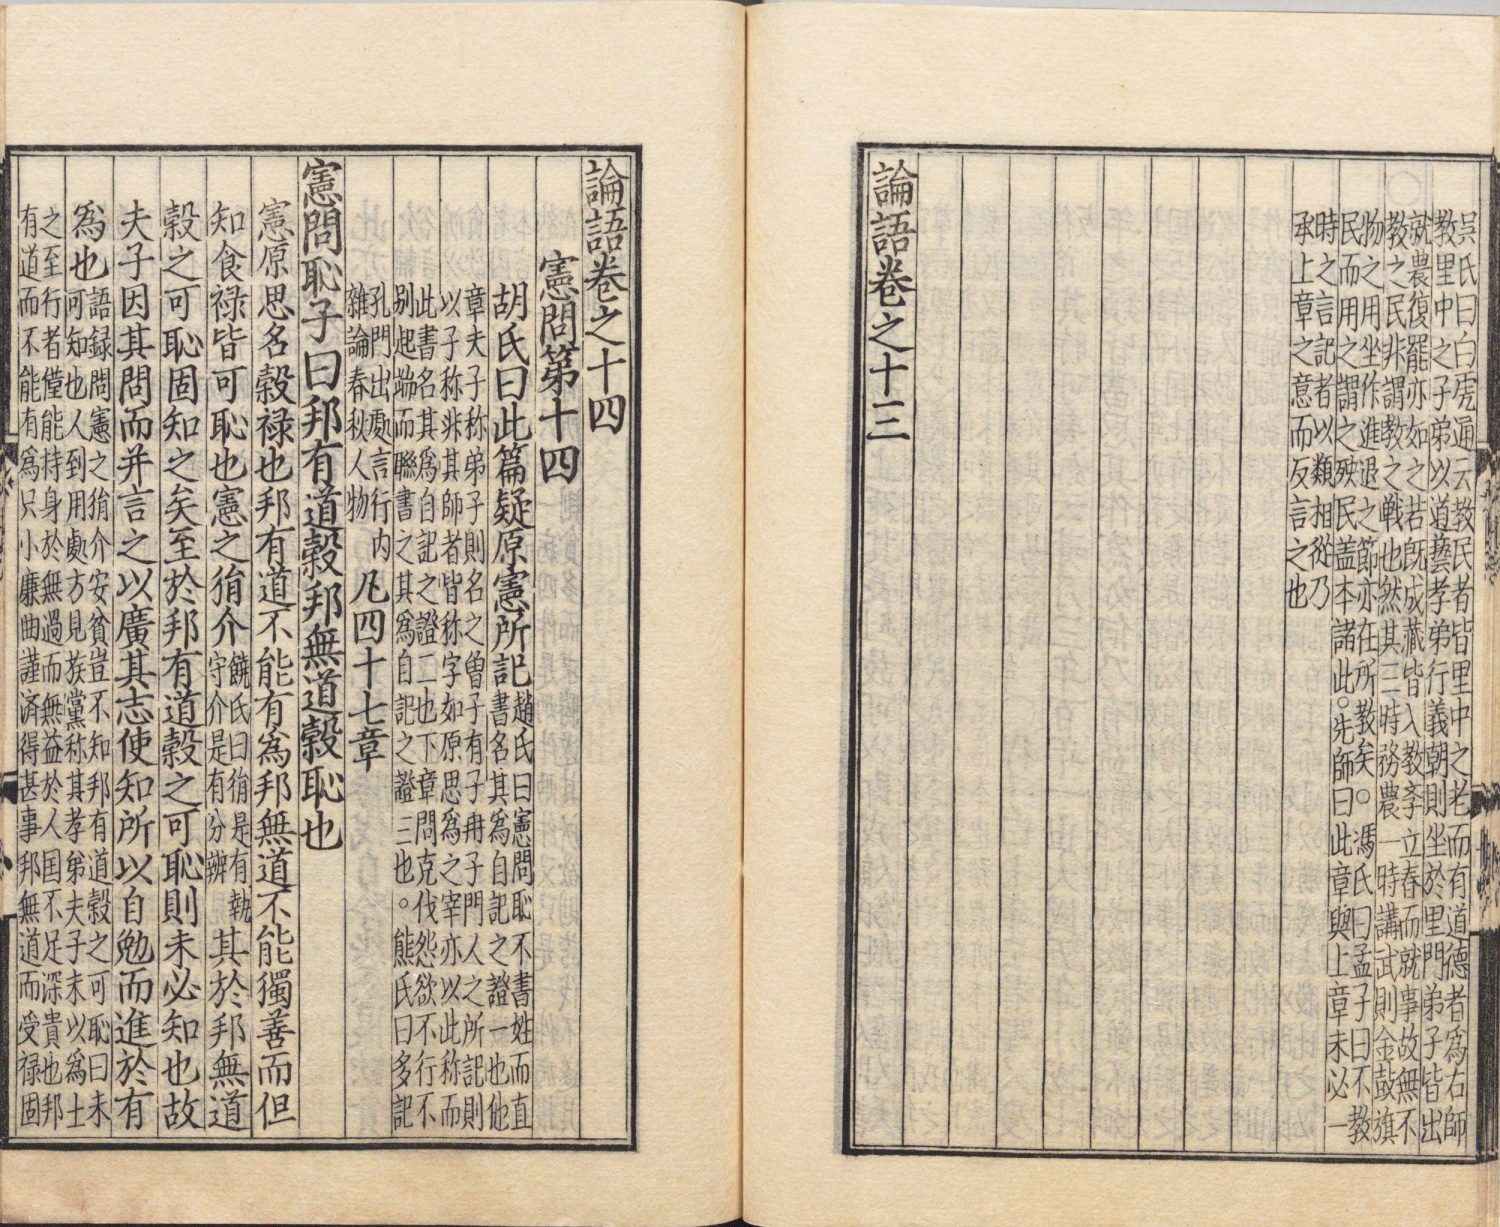 吳氏曰白虎通云教民者皆里中之老而有道德者爲右師
教里中之子弟以道藝孝弟行義朝則坐於里門弟子皆出
就農復罷亦如之若既成藏皆入教斈立春而就事故無不
教之民非謂教之戰也然其三時務農一時講武則金鼓旗
物之用坐作進退之節亦在所教矣○馮氏曰孟子曰不教
民而用之謂之殃民盖本諸此○先師曰此章與上章未必一
時之言記者以類相從乃
承上章之意而反言之也
論語卷之十三
論語卷之十四
憲問第十四
胡氏曰此篇疑原憲所記
趙氏曰憲問恥不書姓而直
書名其爲自記之證一也他
章夫子稱弟子則名之曾子有子冉子門人之所記則
以子称非其師者皆称字如原思爲之宰亦以此称而
此書名其爲自記之證二也下章問克伐怨欲不行不
别起端而聯書之其爲自記之證三也○熊氏曰多記
孔門出處言行内
雜論春秋人物
凡四十七章
憲問恥子曰邦有道穀邦無道穀恥也
憲原思名穀禄也邦有道不能有爲邦無道不能獨善而但
知食禄皆可恥也憲之狷介
饒氏曰狷是有執
守介是有分辨
其於邦無道
穀之可恥固知之矣至於邦有道穀之可恥則未必知也故
夫子因其問而并言之以廣其志使知所以自勉而進於有
爲也
語録問憲之狷介安貧豈不知邦有道穀之可恥曰未
可知也人到用處方見族黨称其孝弟夫子未以爲士
之至行者僅能持身於無過而無益於人国不足深貴也邦
有道而不能有爲只小廉曲謹済得甚事邦無道而受禄固